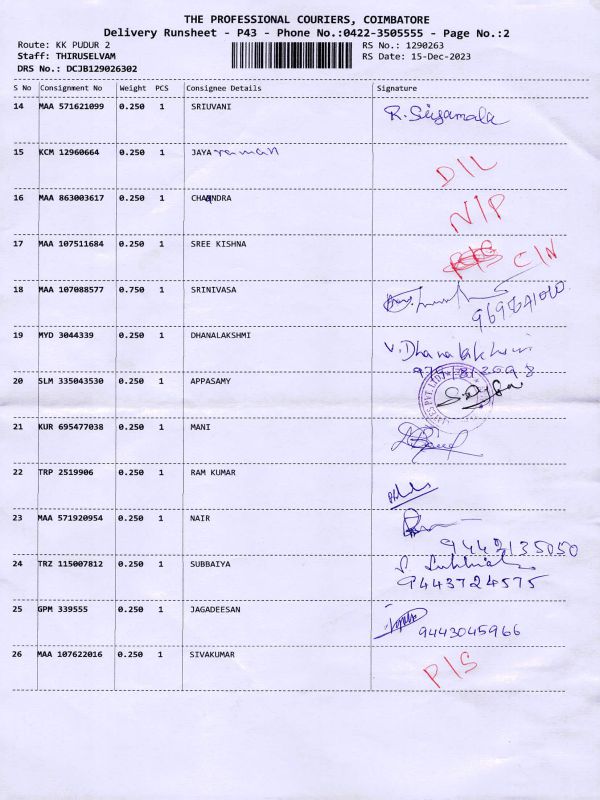 THE PROFESSIONAL COURIERS, COIMBATORE
Delivery Runsheet - P43 - Phone No.:0422-3505555 - Page No.:2
Route: KK PUDUR 2 RS No.: 1290263
Staff: THIRUSELVAM RS Date: 15-Dec-2023
DRS No.: DCJB129026302
S No Consignment No Weight PCS Consignee Details Signature
14 MAA 571621099 0.250 1 SRIUVANI R. Siyamala
15 KCM 12960664 0.250 1 JAYA raman D/L
16 MAA 863003617 0.250 1 CHANDRA N/P
17 MAA 107511684 0.250 1 SREE KISHNA C/N
18 MAA 107088577 0.750 1 SRINIVASA
19 MYD 3044339 0.250 1 DHANALAKSHMI V. Dhanalakshmi
20 SLM 335043530 0.250 1 APPASAMY
21 KUR 695477038 0.250 1 MANI
22 TRP 2519906 0.250 1 RAM KUMAR
23 MAA 571920954 0.250 1 NAIR
9442135050
24 TRZ 115007812 0.250 1 SUBBAIYA
9443724575
25 GPM 339555 0.250 1 JAGADEESAN 9443045966
26 MAA 107622016 0.250 1 SIVAKUMAR P/S